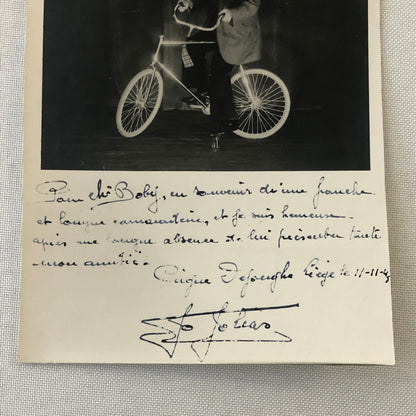 Pour cher Boby, en souvenir d'une franche
et longue camaraderie, et je suis heureux
après une longue absence de lui présenter toute
mon amitié.
Cirque Dejonghe Liège le 11-11-45
Jo